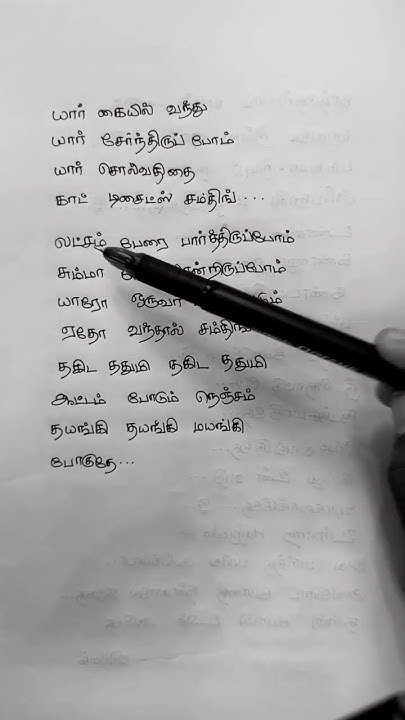 யார் கையில் வந்து
யார் சேர்ந்திருப் போம்
யார் சொல்வதிதை
காட் டிசைட்ஸ் சம்திங்...
லட்சம் பேரை பார்த்திருப்போம்
சும்மா
யாரோ ஒருவர்
ஏதோ வந்தால் சம்திங்
தகிட ததுமி தகிட ததுமி
ஆட்டம் போடும் நெஞ்சம்
தயங்கி தயங்கி மயங்கி
போகுதே...